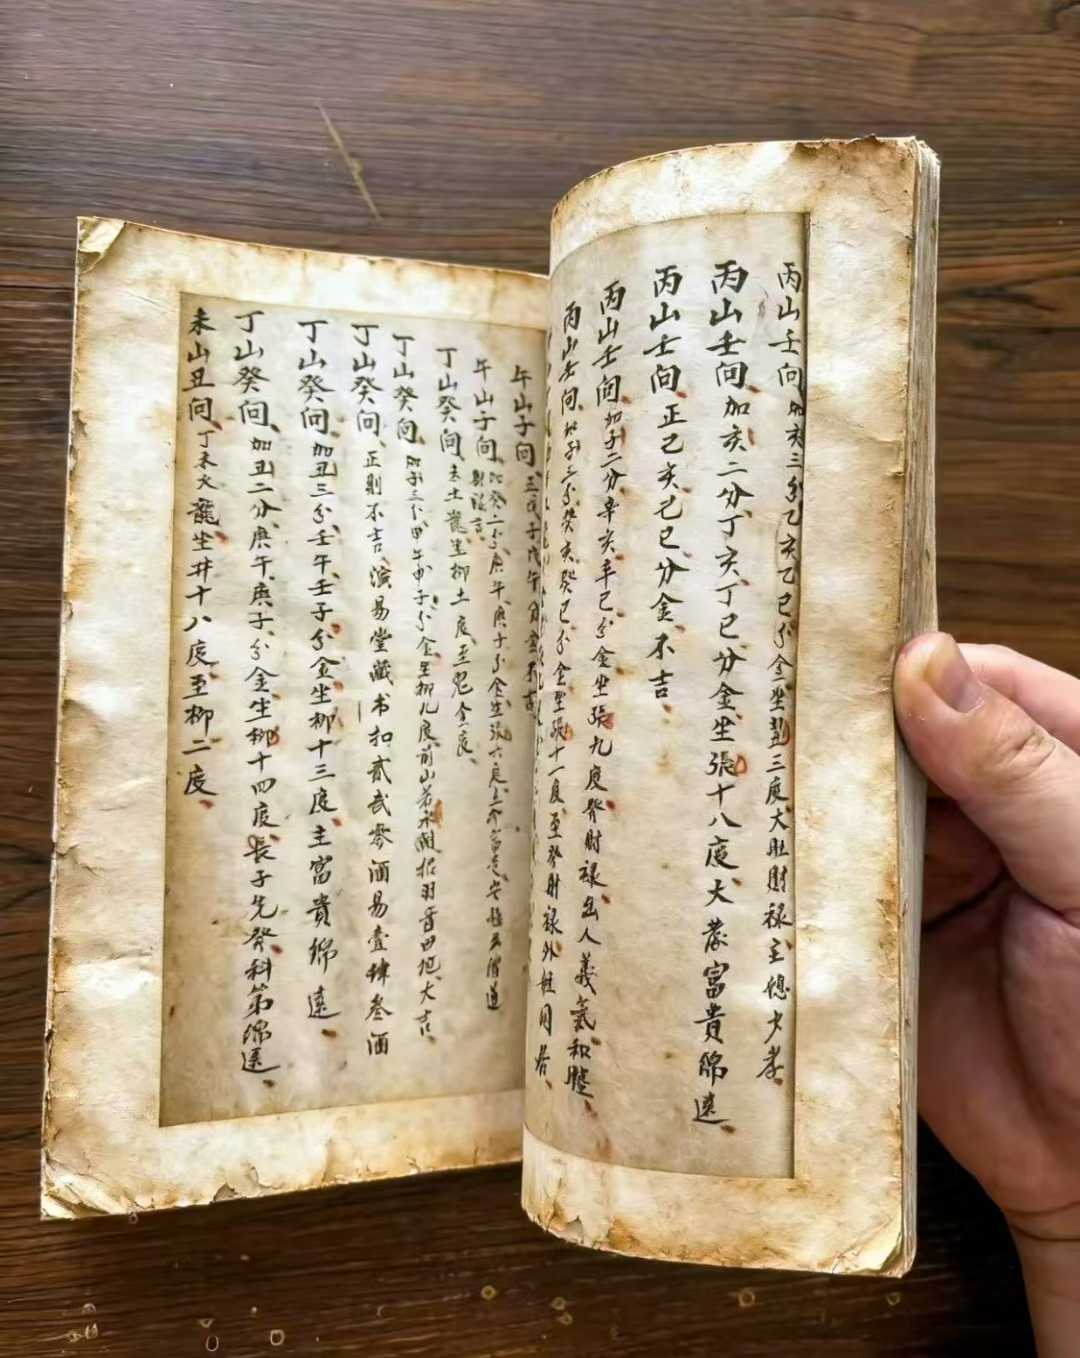 丙山壬向加亥三分乙亥乙巳分金坐翌三度大旺財祿主媳少孝
丙山壬向加亥二分丁亥丁巳分金坐張十八度大發富貴綿遠
丙山壬向正己亥己巳分金不吉
丙山壬向加子二分辛亥辛巳分金坐張九度發財祿出人義氣和睦
丙山壬向加子三分癸亥癸巳分金坐張十一度至發財祿外姓同居
午山子向正戊子戊午分金不吉
午山子向加癸二分庚午庚子分金坐張六度
丁山癸向未土龍坐柳土度至鬼金度
丁山癸向加子三分甲午甲子分金坐柳九度前山若水朝招羽音田地大吉
丁山癸向正則不吉演易堂藏书扣贰贰零酒易壹肆叁酒
丁山癸向加丑三分壬午壬子分金坐柳十三度主富貴綿遠
丁山癸向加丑二分庚午庚子分金坐柳十四度長子先發科第綿遠
未山丑向丁未火龍坐井十八度至柳二度